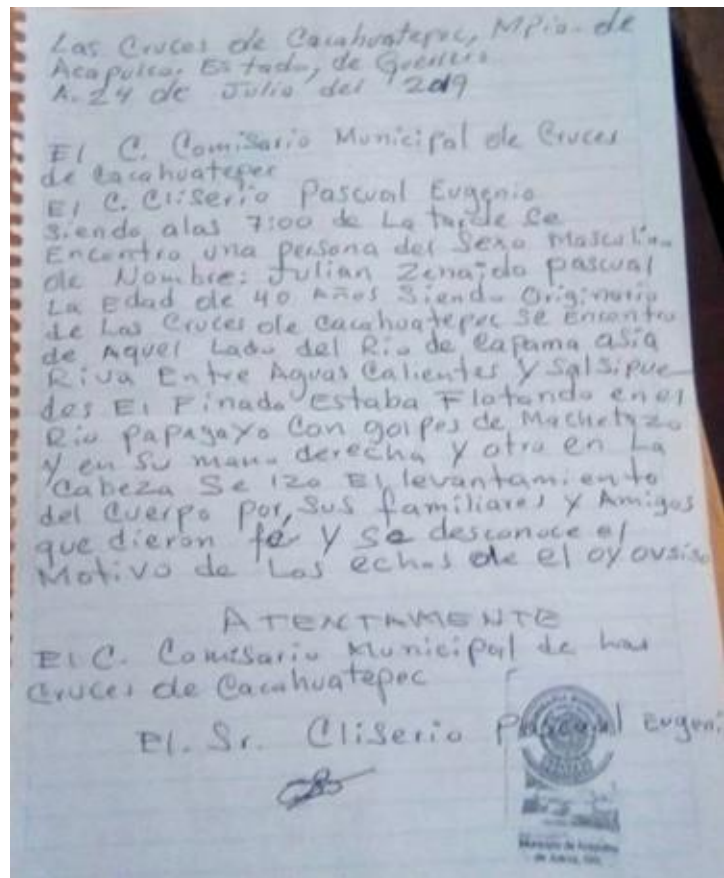 Las Cruces de Cacahuatepec, Mpio. de
Acapulco. Estado, de Guerrero
A. 24 de Julio del 2019
El C. Comisario Municipal de Cruces
de Cacahuatepec
El C. Cliserio Pascual Eugenio
Siendo alas 7:00 de La tarde se
Encontro una persona del Sexo Masculino
de Nombre: Julian Zenaido pascual
La Edad de 40 Años Siendo Originario
de Las Cruces de Cacahuatepec se Encontro
de Aquel Lado del Rio de Capama asia
Riva Entre Aguas Calientes y Salsipue
des El Finado Estaba Flotando en el
Rio papagayo Con golpes de Machetazo
y en Su mano derecha y otro en La
Cabeza Se izo El levantamiento
del Cuerpo Por, Sus familiares y Amigos
que dieron fe y se desconoce el
Motivo de Los echos de el oyovsiso
ATENTAMENTE
El C. Comisario Municipal de las
Cruces de Cacahuatepec
El. Sr. Cliserio Pascual Eugeni
Municipio de Acapulco
de Juárez, Gro.